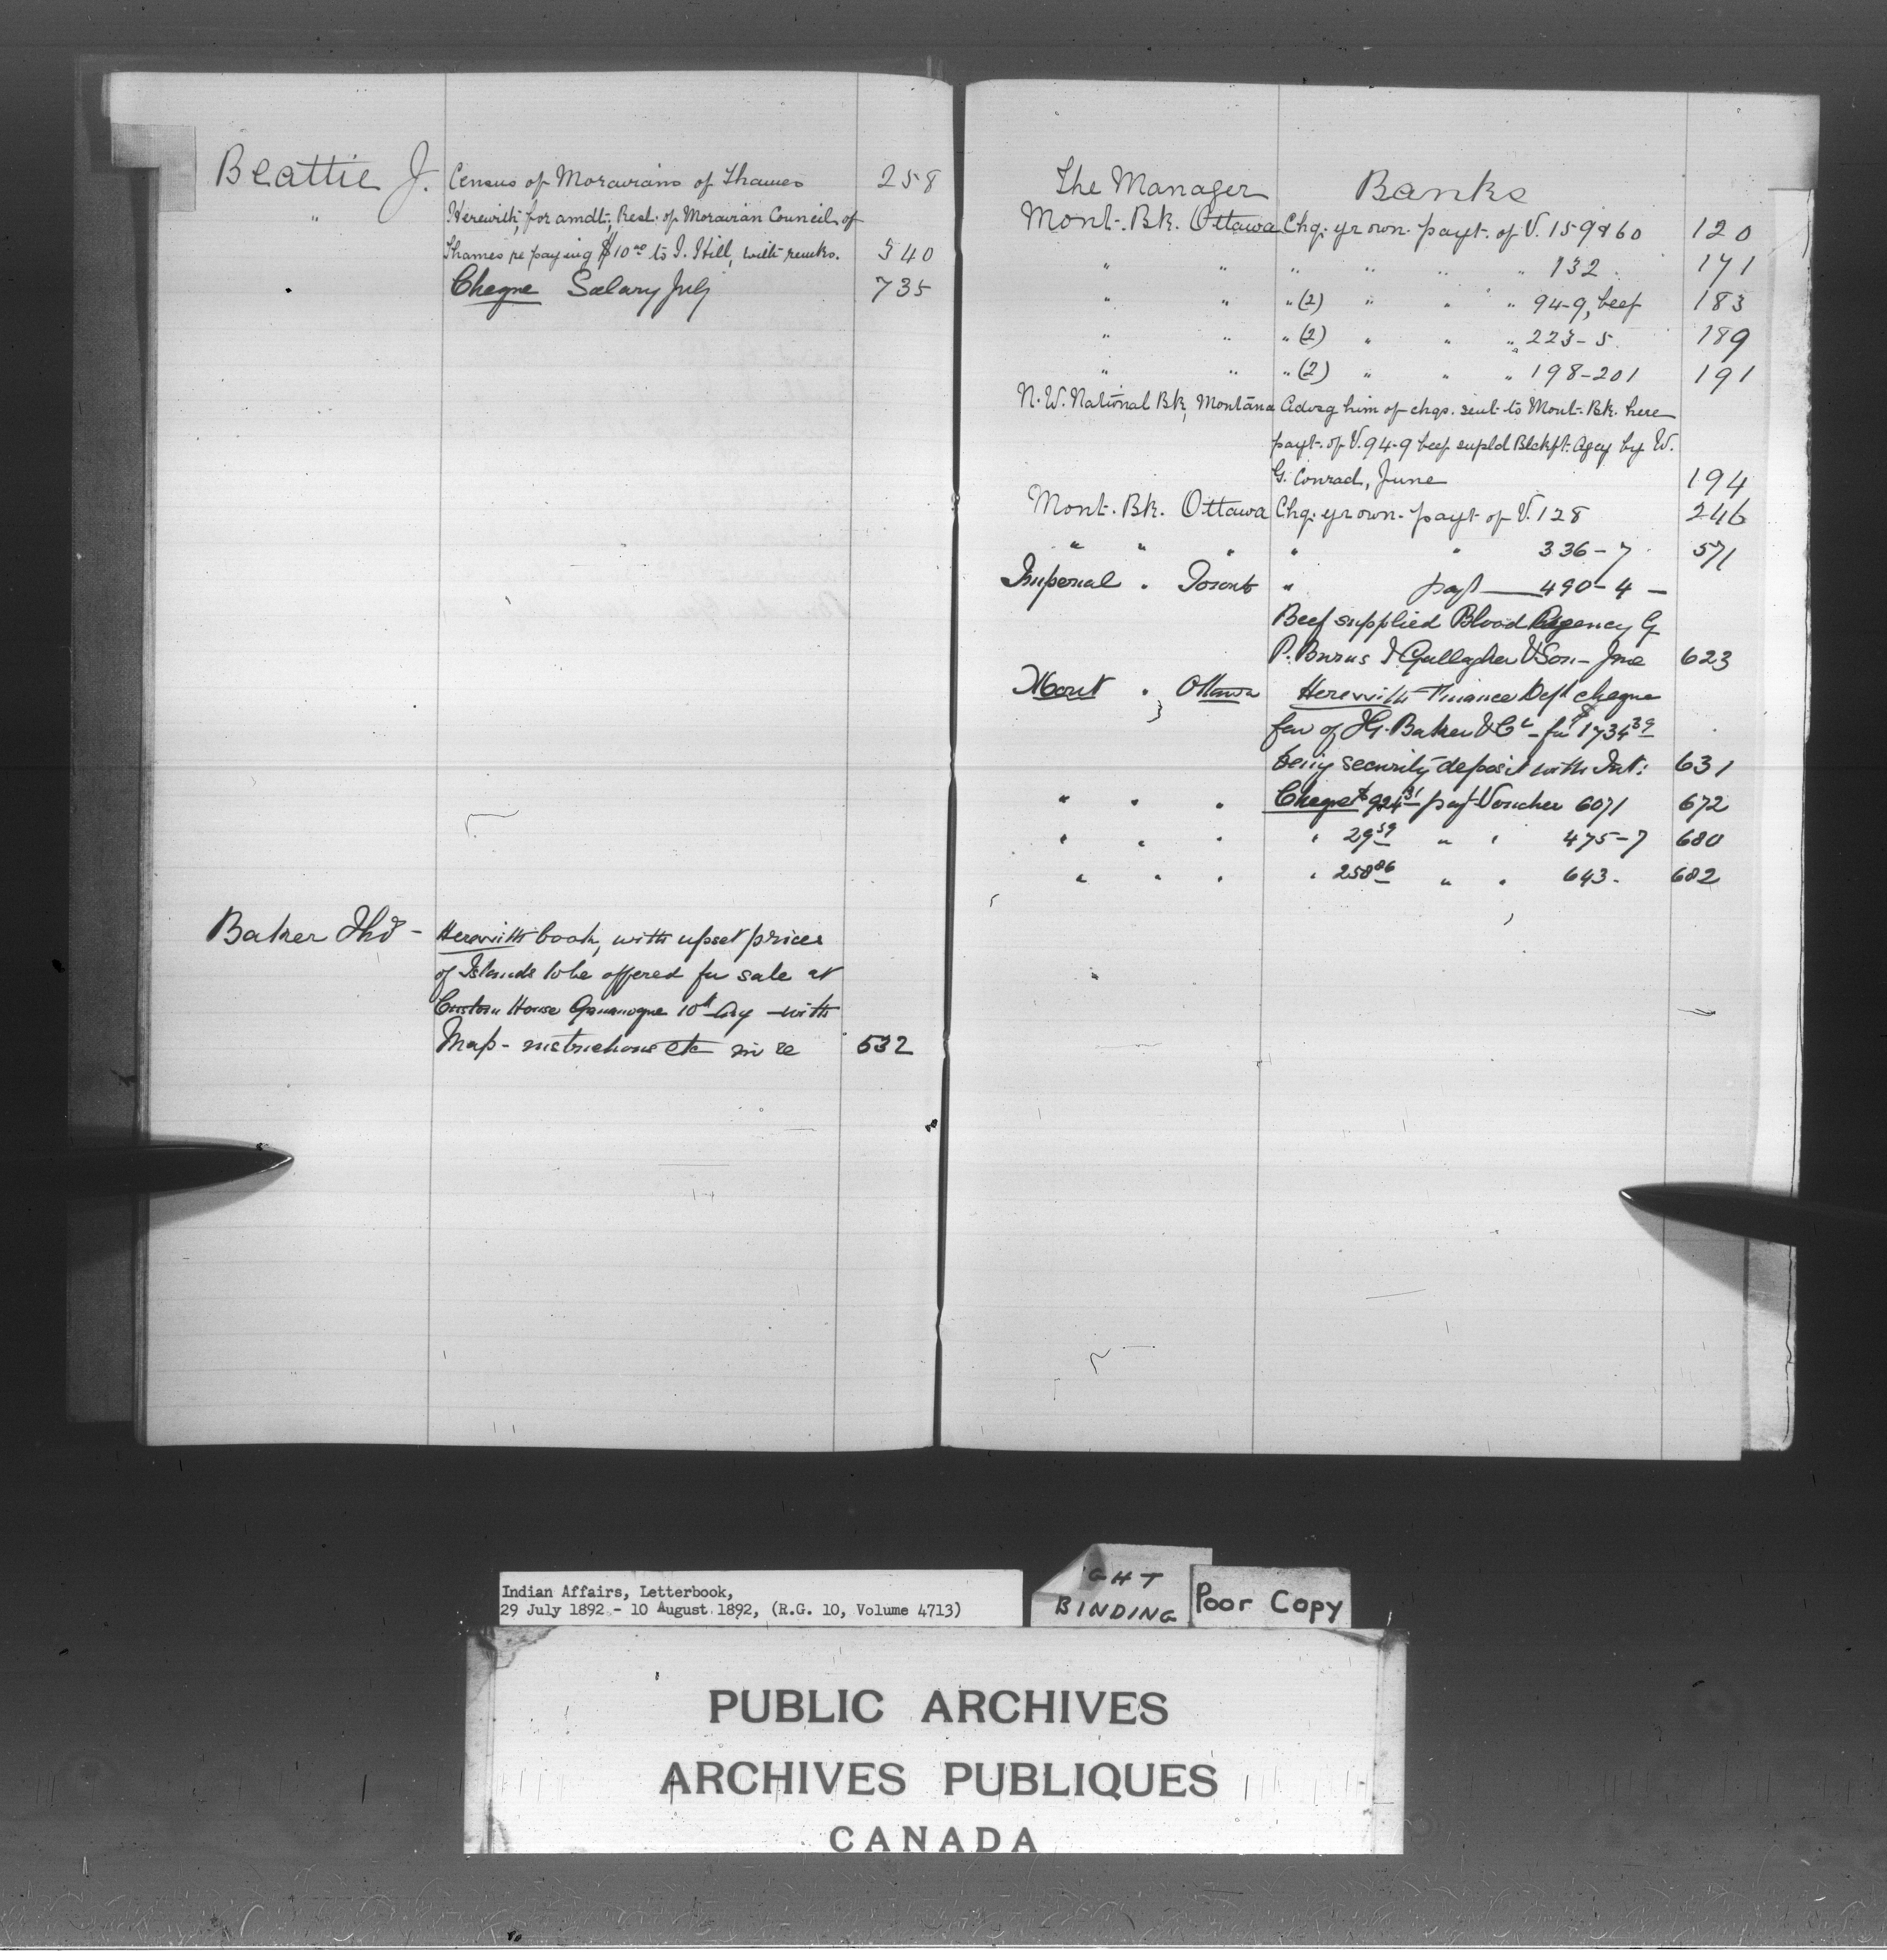 Beattie J. Census of Moravians of Thames 258
" Herewith, for amdt., Resl. of Moravian Council of
Thames re paying $10 00 to I. Hill, with remks. 540
Cheque Salary July 735
Baker Thos - Herewith book, with upset prices
of Islands to be offered for sale at
Custom House Gananoque 10th Aug - with
Map - instructions etc in re 532
The Manager Banks
Mont. Bk. Ottawa Chq. yr own. payt. of V. 159 & 60 120
" " " " " " 132. 171
" " " (2) " " " 94-9, beef 183
" " " (2) " " " 223-5. 189
" " " (2) " " " 198-201 191
N.W. National Bk, Montana Advsg him of chqs. sent to Mont. Bk. here
payt. of V. 94-9 beef supld Blckft. Agcy by W.
G. Conrad, June 194
Mont. Bk. Ottawa Chq. yr own. payt of V. 128 246
" " " " " 336-7. 571
Imperial " Toronto " payt 490-4 -
Beef supplied Blood Agency
P. Burns I. Gallagher & Son - June 623
Mont " Ottawa Herewith Finance Dept cheque
fav of I.G. Baker & Co - for $1734 39
being security deposit with Int: 631
" " " Cheque $924 31 payt Voucher 6071 672
" " " " 29 59 " " 475-7 680
" " " " 258 86 " " 643. 682
Indian Affairs, Letterbook,
29 July 1892 - 10 August 1892, (R.G. 10, Volume 4713)
GHT
BINDING
Poor Copy
PUBLIC ARCHIVES
ARCHIVES PUBLIQUES
CANADA